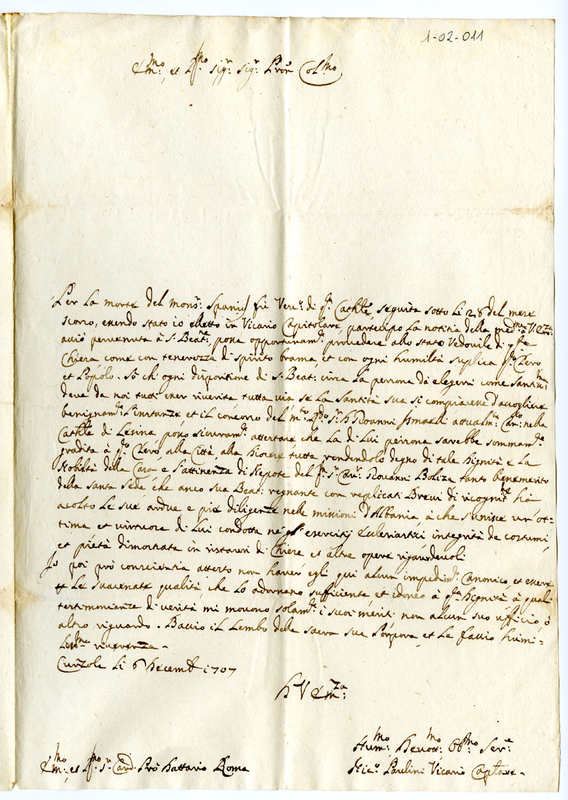 1-02-011
Em:mo et R:mo Sig:r Sig:r Pron Col:mo
Per la morte del mons:r Spanich fù Ves:o di q:sta Catt:le seguita sotto li 28 del mese
scorso, essendo stato io eletto in Vicario Capitolare, partecipo la notitia della med:ma
acciò pervenuta à S. Beat:ne possa opportunam:te provedere allo stato Vedovile di q:sta
Chiesa come con tenerezza di spirito brama, et con ogni humiltà suplica q:sto Clero
et Popolo. Sò ch'ogni dispositione di S. Beat:ne circa la persona da elegersi come Santiss:ma
deve da noi tutti esser riverita tutta via se la Santità sua si compiacesse d'accogliere
benignam:te l'instanze, et il concorso del m:to R:do S:r Giovanni attualm:te Can:co nella
Catt:le di Lesina, posso sicuram:te assertare che la di lui persona sarebbe sommam:te
gradita à q:sto Clero alla Città alla Diocese tutta rendendolo degno di tale dignità e la
Nobiltà della Casa e l'attinenza di Nepote del q:m S:r Cav:r Giovanni Boliza tanto benemerito
della Santa Sede, che anco sua Beat:ne regnante con replicati Brevi di ricognit:ne hà
accolto le sue ardue e pie diligenze nelle missioni d'Albania, à che s'unisce un'ot-
tima et virtuosa di lui condotta negl'esercitij Eclesiastici integrità de costumi,
et pietà dimostrata in ristauri di Chiese et altre opere riguardevoli
Io poi per conscientia asserto non haver egli qui alcun impedim:to Canonico et essere
le suacenate qualità, che lo adornano sufficiente et idoneo à q:sta dignità à qual
testimonianza di verità mi movono solam:te i suoi meriti non alcun suo ufficio ò
altro riguardo. Baccio il Lembo della sacra sua Porpora, et la faccio humi-
liss:ma riverenza.
Curzola li 6 Decemb:e 1707
D V Em:za
Hum:mo Devot:mo Obl:mo Ser:e
Em:mo et R:mo S:r Card: Prò Dattario Roma
Nic:o Paulini Vicario Capitolare